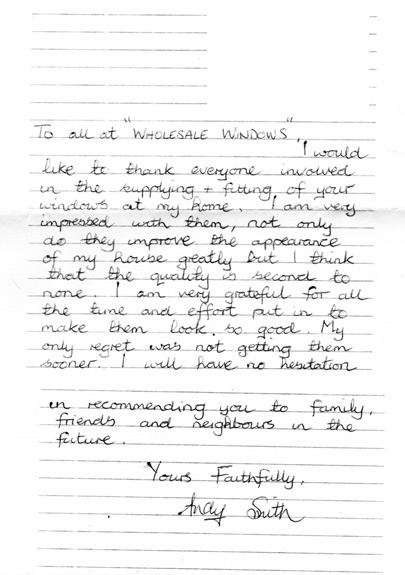 To all at "WHOLESALE WINDOWS",
I would
like to thank everyone involved
in the supplying + fitting of your
windows at my home. I am very
impressed with them, not only
do they improve the appearance
of my house greatly but I think
that the quality is second to
none. I am very grateful for all
the time and effort put in to
make them look so good. My
only regret was not getting them
sooner. I will have no hesitation
in recommending you to family,
friends and neighbours in the
future.
Yours Faithfully,
Andy Smith